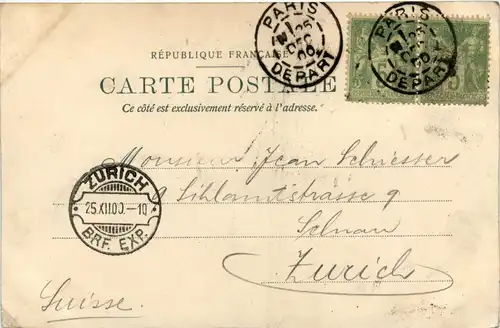 PARIS
DEC
00
DEPART
PARIS
DEC
DEPART
RÉPUBLIQUE FRANÇAISE
CARTE POSTALE
Ce côté est exclusivement réservé à l'adresse.
Monsieur Jean Schiesser
Sihlamtstrasse 9
Selnau
Zurich
Suisse.
ZÜRICH
25.XII.00.-10
BRF. EXP.